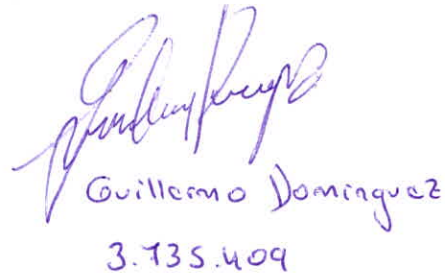 Guillermo Dominguez
3.735.409